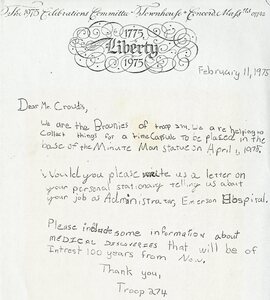 The 1975 Celebrations Committee • Townhouse • Concord • Mass
1775
Liberty
1975
February 11, 1975
Dear Mr. Crowds,
We are the Brownies of troop 274. We are helping to
collect things for a time Capsule to be placed in the
base of the Minute Man statue on April 1, 1975.
Would you please write us a letter on
your personal stationary telling us about
your job as Administrator, Emerson Hospital.
Please include some information about
MEDICAL DISCOVERIES that will be of
Intrest 100 years from Now.
Thank you,
Troop 274